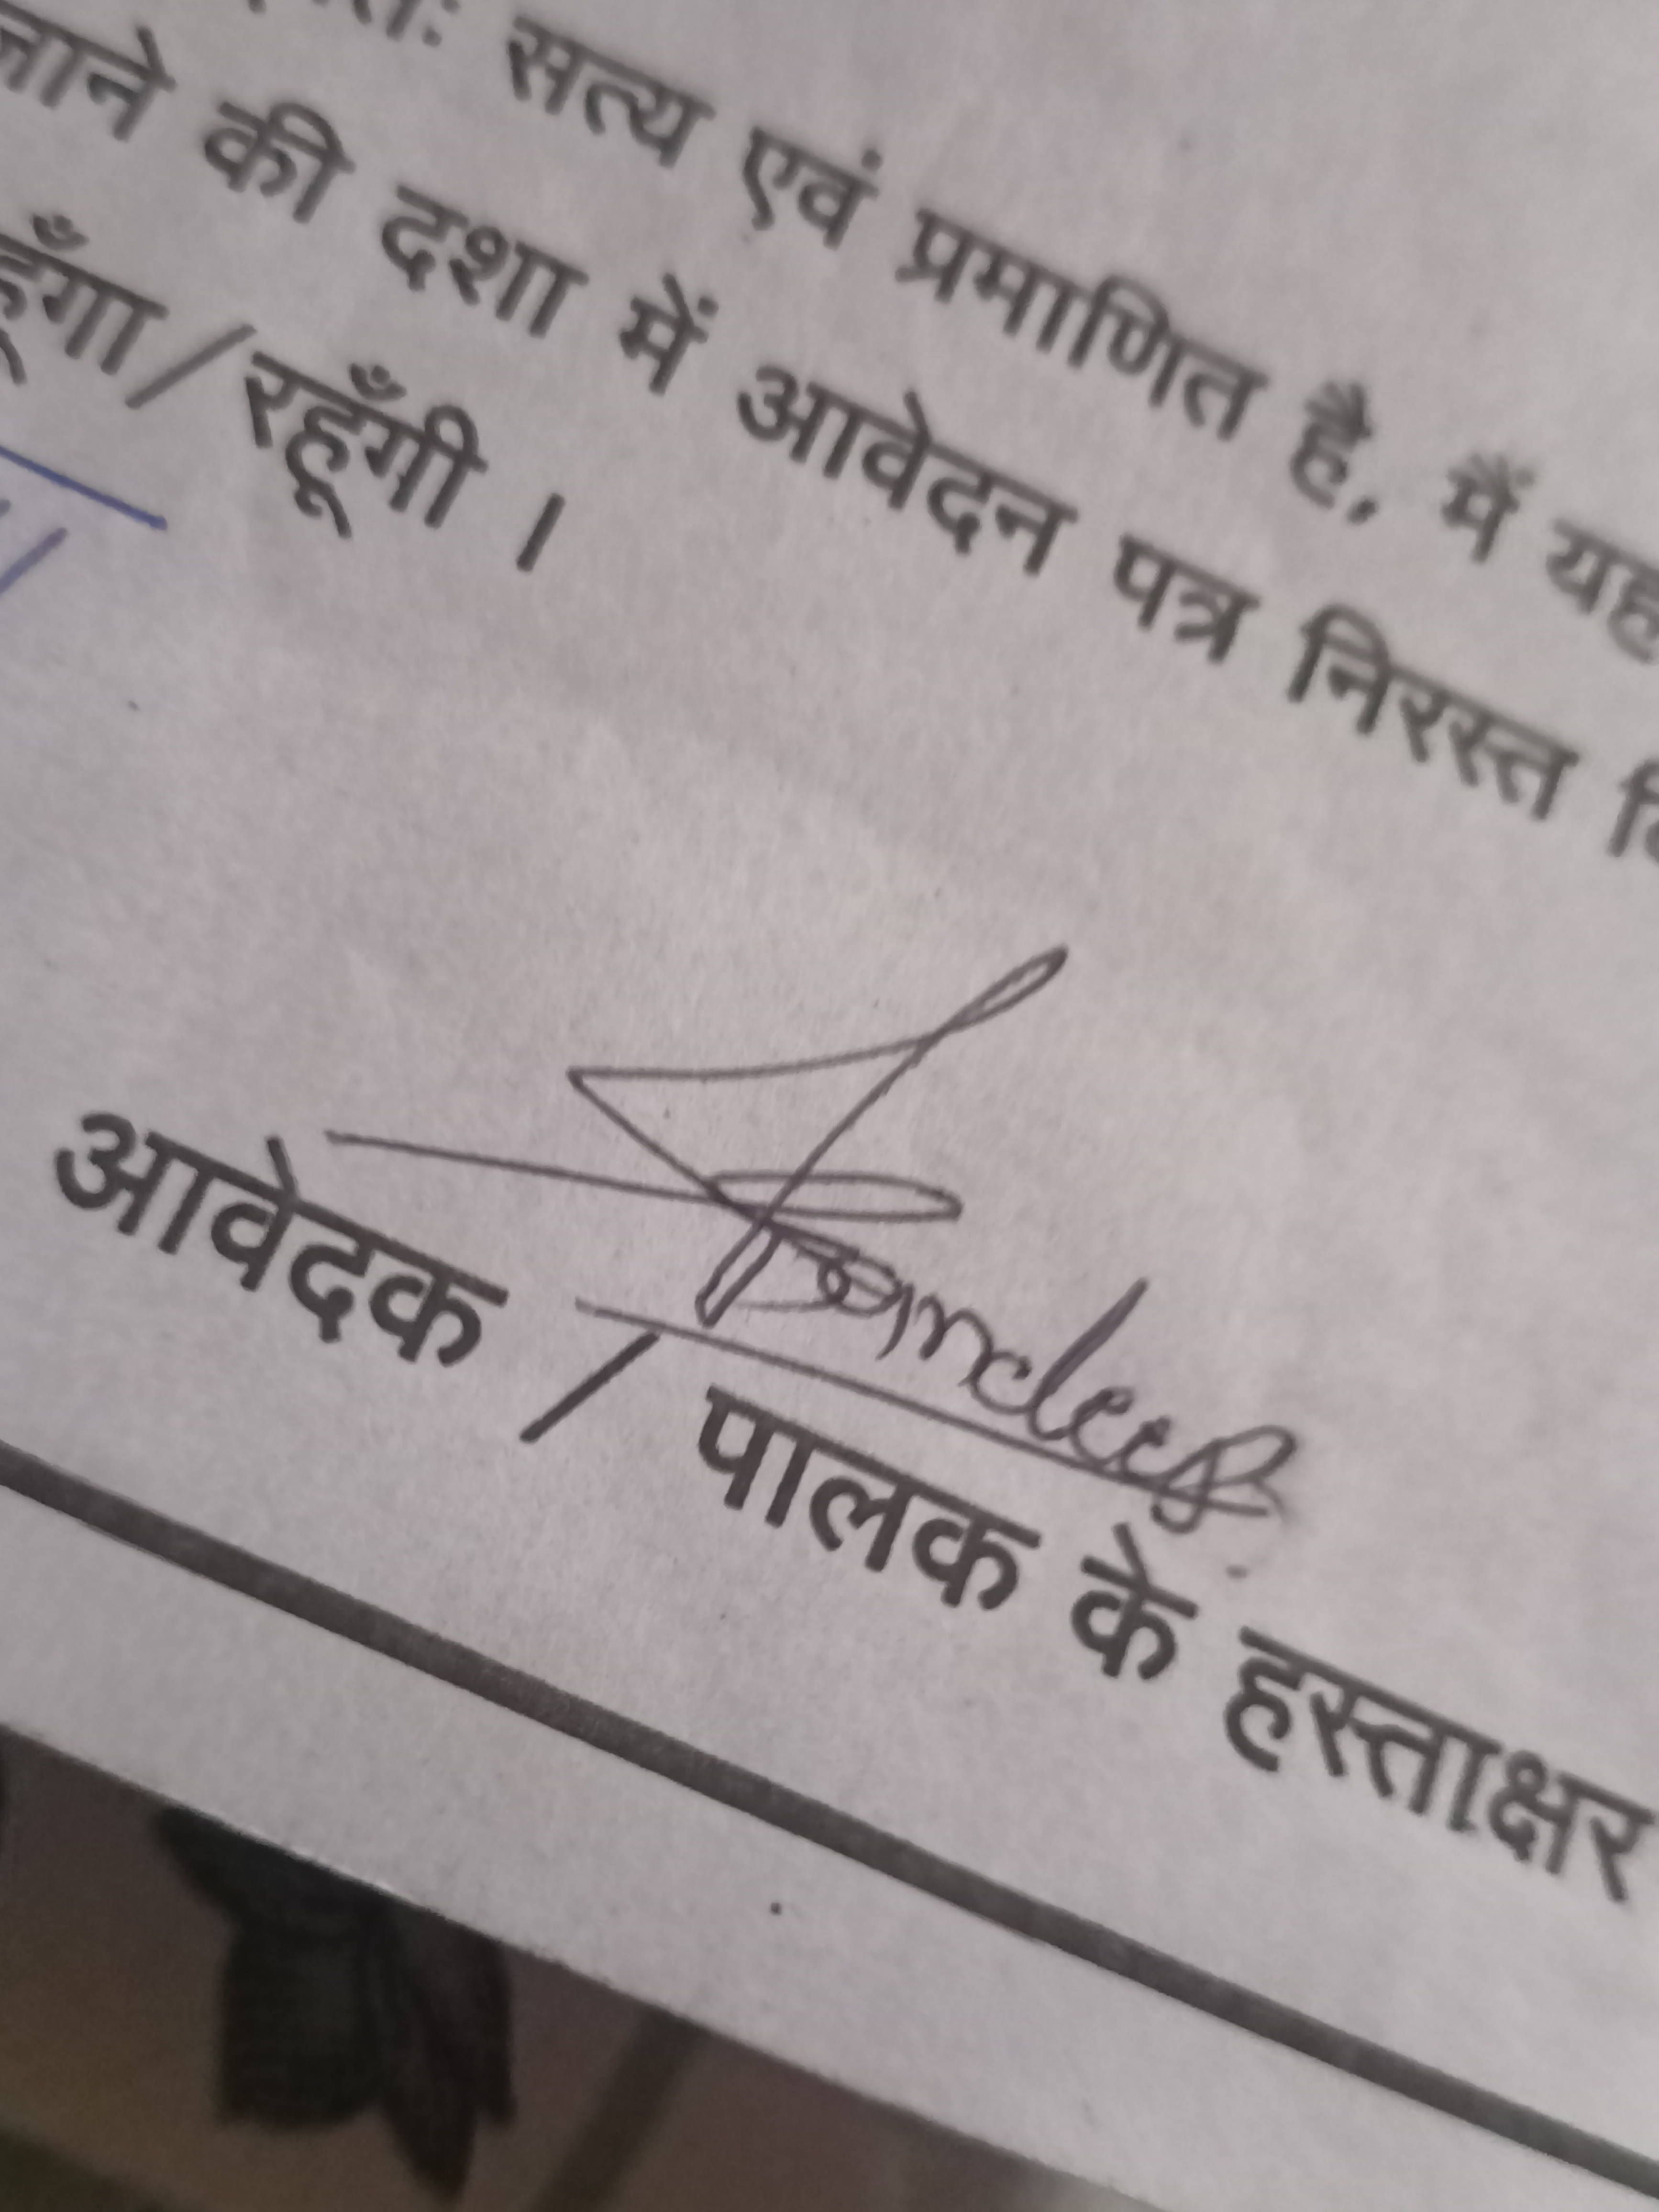 सत्य एवं प्रमाणित है, मैं यह
जाने की दशा में आवेदन पत्र निरस्त
रहूँगा/रहूँगी ।
Sandeep
आवेदक / पालक के हस्ताक्षर